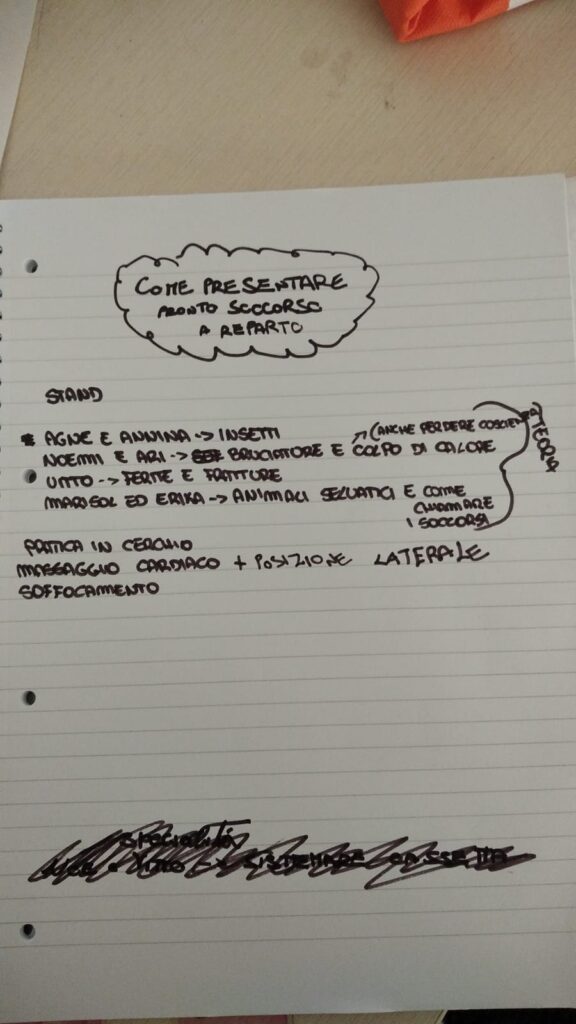 COME PRESENTARE
PRONTO SOCCORSO
A REPARTO
STAND
AGNE E ANNINA -> INSETTI
(ANCHE PERDERE
NOEMI E ARI -> BRUCIATORE E COLPO DI CALORE
VITTO -> FERITE E FRATTURE
MARISOL ED ERIKA -> ANIMALI SELVATICI E COME
CHIAMARE
I SOCCORSI
TEORIA
PRATICA IN CERCHIO
MASSAGGIO CARDIACO + POSIZIONE LATERALE
SOFFOCAMENTO
SPECIALITÀ
SISTEMARE